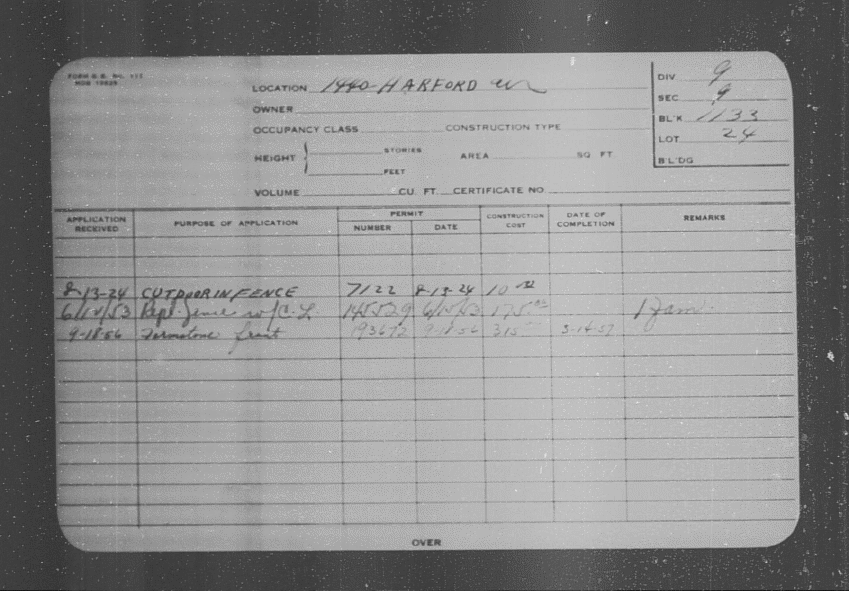 FORM G.B. No. 111
LOCATION 1440-HARFORD av
OWNER
OCCUPANCY CLASS CONSTRUCTION TYPE
HEIGHT STORIES AREA SQ FT
FEET
VOLUME CU. FT. CERTIFICATE NO
DIV 9
SEC 9
BL'K 1133
LOT 24
B'L'DG
APPLICATION RECEIVED PURPOSE OF APPLICATION PERMIT NUMBER DATE CONSTRUCTION COST DATE OF COMPLETION REMARKS
8-13-24 CUTDOORINFENCE 7122 8-13-24 10
6/15/53 Repl. fence w/ C.L. 145529 6/15/53 175 1 fam.
9-18-56 Formstone front 193672 9-18-56 315 5-14-57
OVER